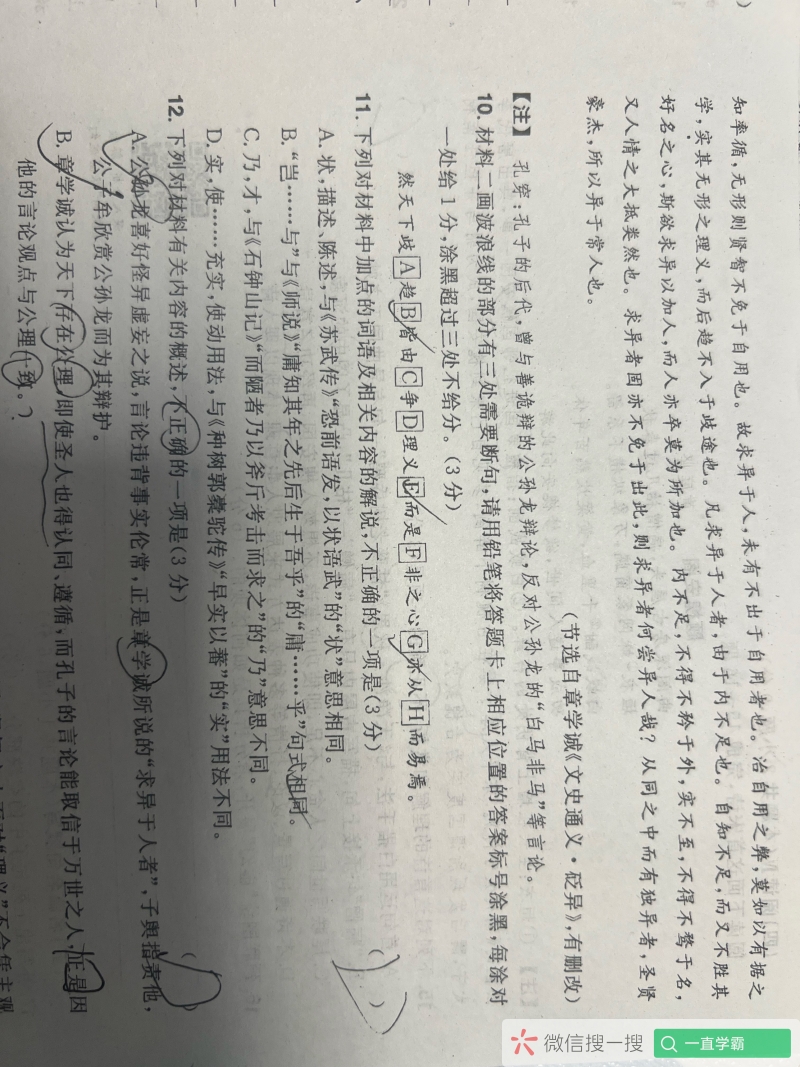 知率循，无形则贤智不免于自用也。故求异于人，未有不出于自用者也。治自用之弊，莫如以有据之
学，实其无形之理义，而后趋不入于歧途也。凡求异于人者，由于内不足也。自知不足，而又不胜其
好名之心，斯欲求异以加人，而人亦卒莫为所加也。内不足，不得不矜于外，实不至，不得不骛于名，
又人情之大抵类然也。求异者固亦不免于出此，则求异者何尝异人哉？从同之中而有独异者，圣贤
豪杰，所以异于常人也。
（节选自章学诚《文史通义·砭异》，有删改）
【注】 孔穿：孔子的后代，曾与善诡辩的公孙龙辩论，反对公孙龙的“白马非马”等言论。
10. 材料二画波浪线的部分有三处需要断句，请用铅笔将答题卡上相应位置的答案标号涂黑，每涂对
一处给 1 分，涂黑超过三处不给分。（3 分）
然天下歧 A 趋 B 皆由 C 争 D 理义 E 而是 F 非之心 G 亦从 H 而易焉。
11. 下列对材料中加点的词语及相关内容的解说，不正确的一项是（3 分） （ ）
A. 状，描述、陈述，与《苏武传》“恐前语发，以状语武”的“状”意思相同。
B. “岂……与”与《师说》“庸知其年之先后生于吾乎”的“庸……乎”句式相同。
C. 乃，才，与《石钟山记》“而陋者乃以斧斤考击而求之”的“乃”意思不同。
D. 实，使……充实，使动用法，与《种树郭橐驼传》“早实以蕃”的“实”用法不同。
12. 下列对材料有关内容的概述，不正确的一项是（3 分） （ ）
A. 公孙龙喜好怪异虚妄之说，言论违背事实伦常，正是章学诚所说的“求异于人者”，子舆指责他，
公子牟欣赏公孙龙而为其辩护。
B. 章学诚认为天下存在公理，即使圣人也得认同、遵循，而孔子的言论能取信于万世之人，正是因
他的言论观点与公理一致。？
微信搜一搜
一直学霸